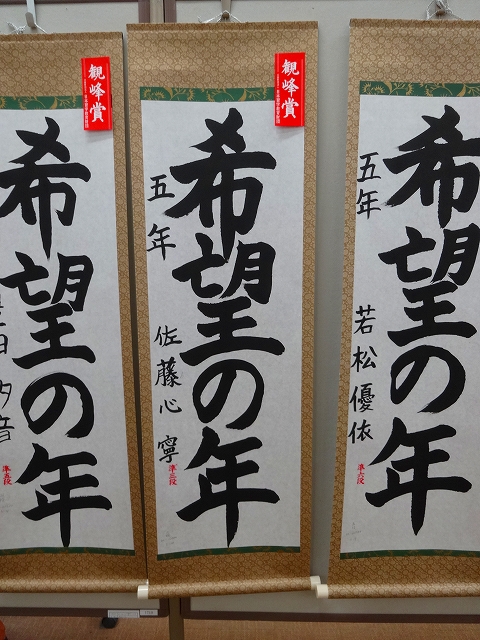 希望の年
五年
若松優依
準六段
観峰賞
希望の年
五年
佐藤心寧
準三段
観峰賞
希望の年
準五段